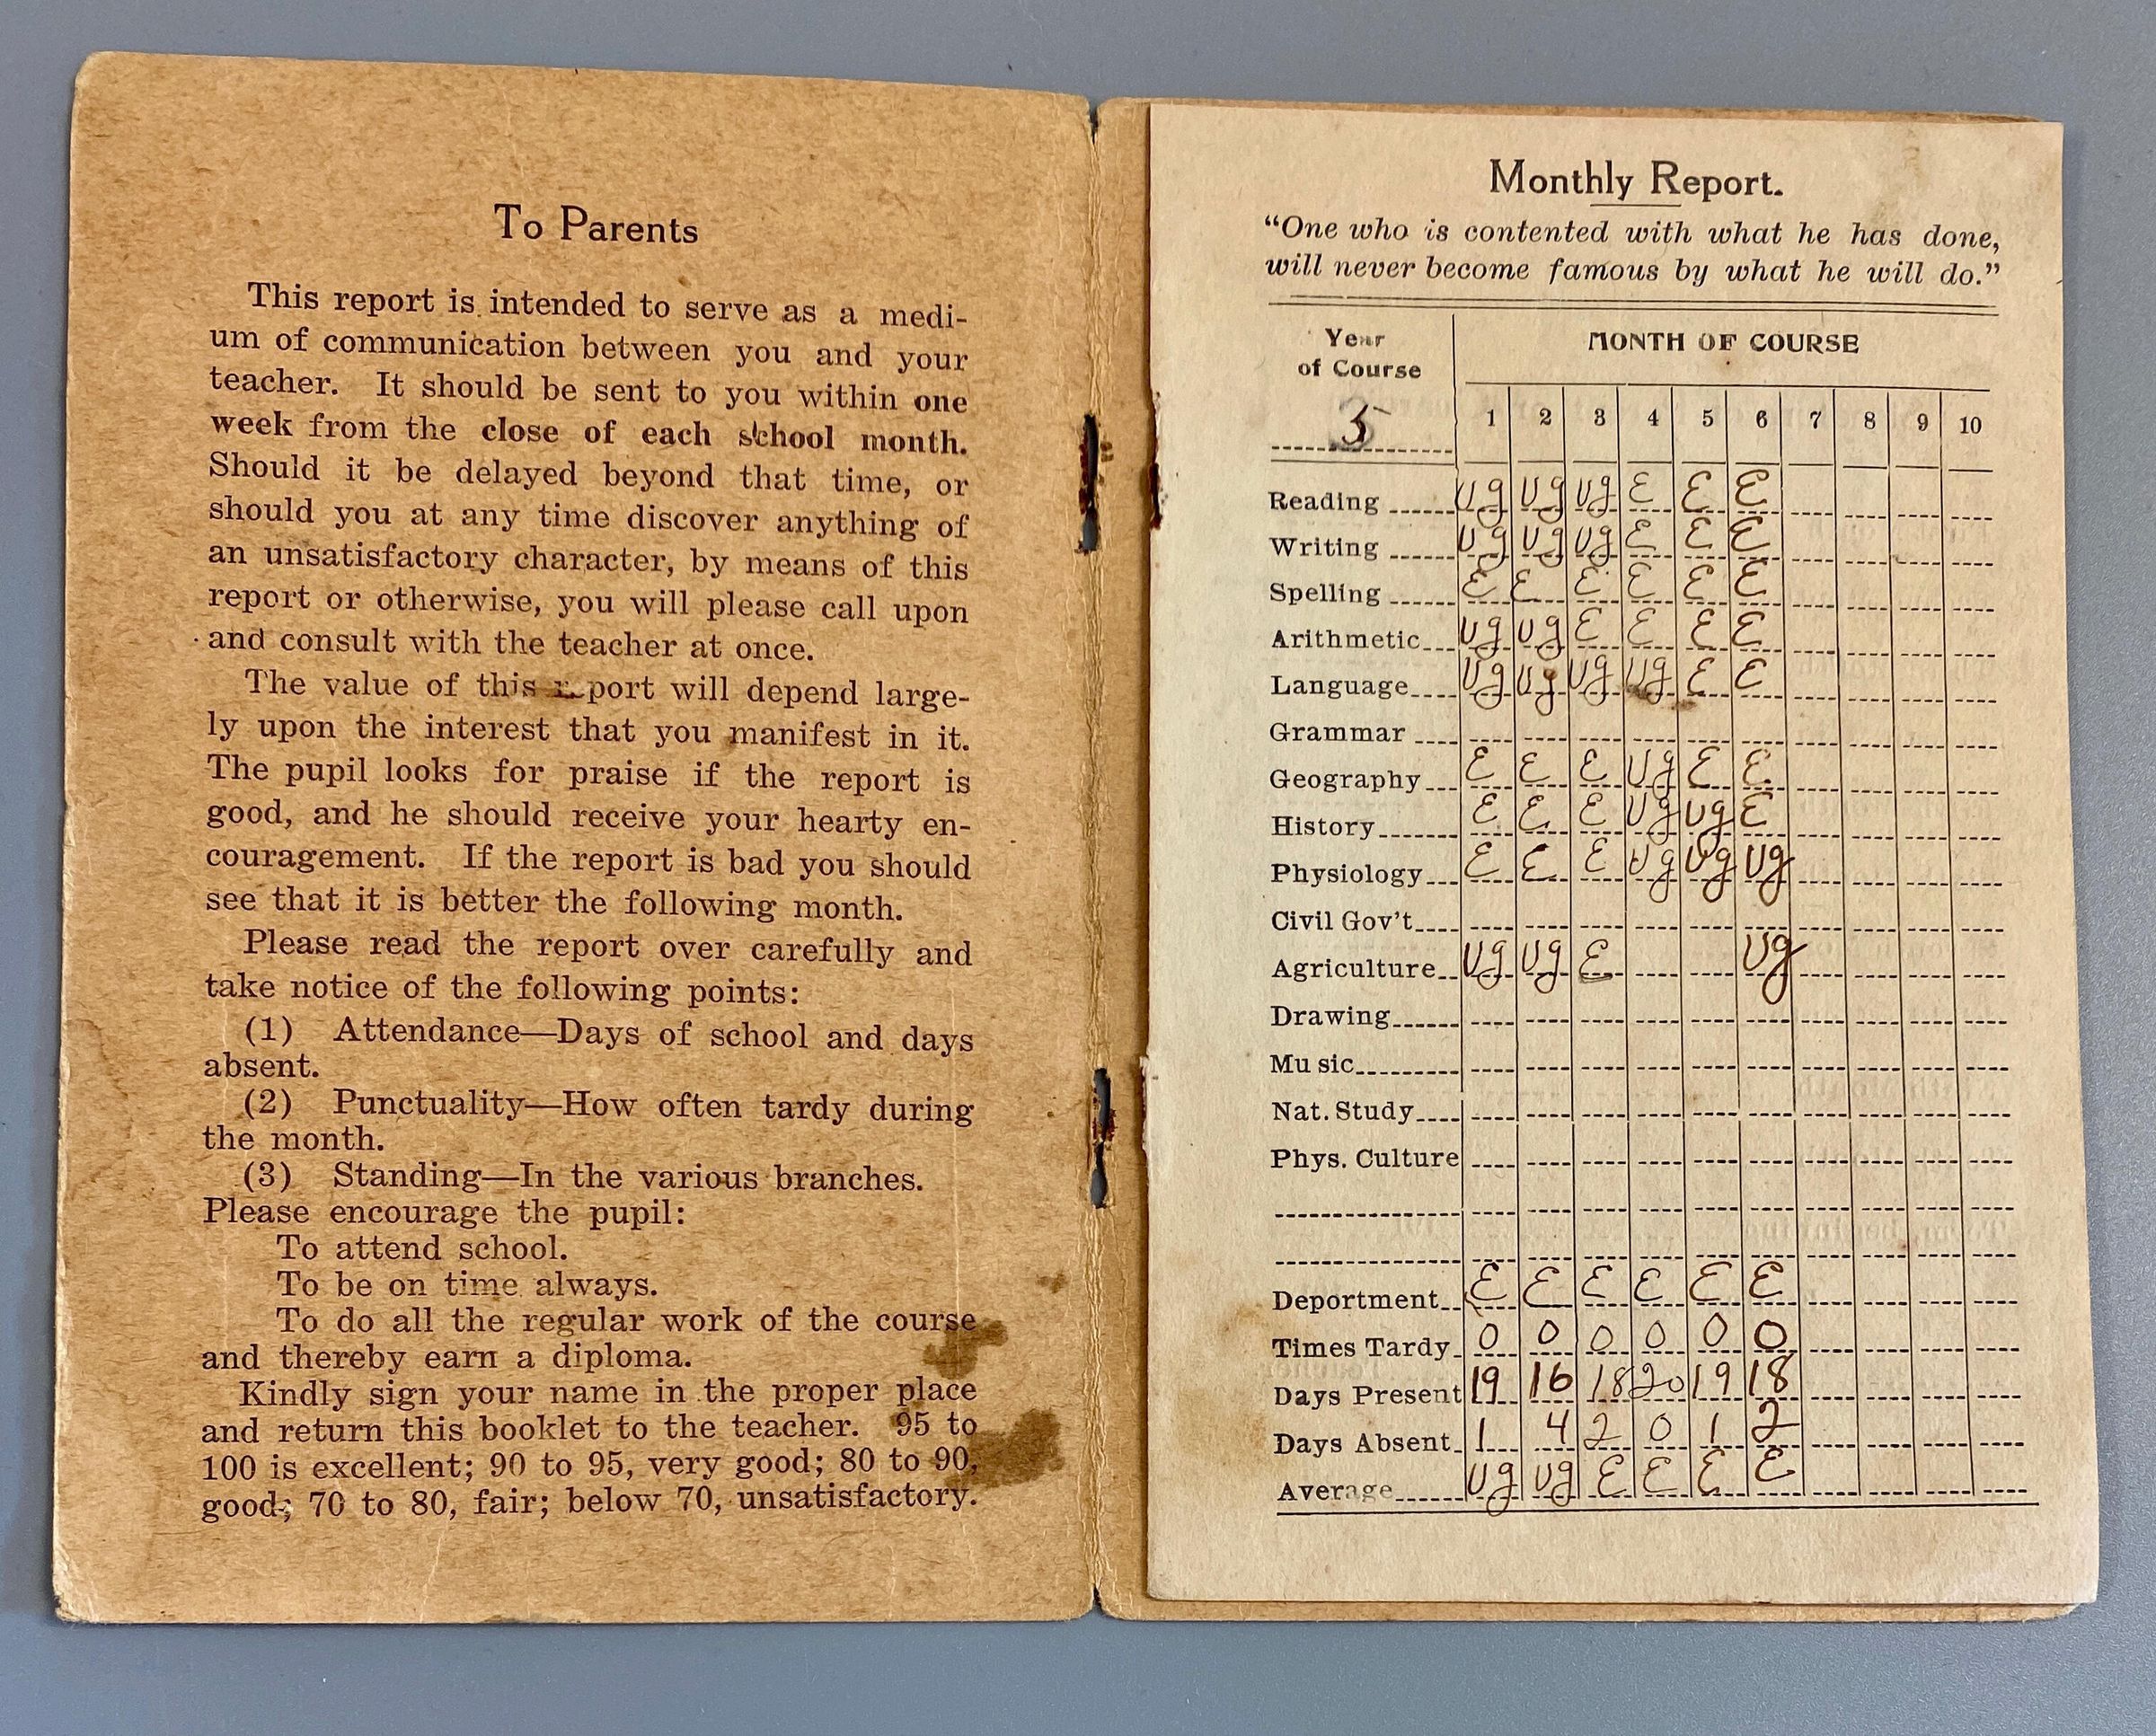 To Parents
This report is intended to serve as a medi-
um of communication between you and your
teacher. It should be sent to you within one
week from the close of each school month.
Should it be delayed beyond that time, or
should you at any time discover anything of
an unsatisfactory character, by means of this
report or otherwise, you will please call upon
and consult with the teacher at once.
The value of this report will depend large-
ly upon the interest that you manifest in it.
The pupil looks for praise if the report is
good, and he should receive your hearty en-
couragement. If the report is bad you should
see that it is better the following month.
Please read the report over carefully and
take notice of the following points:
(1) Attendance—Days of school and days
absent.
(2) Punctuality—How often tardy during
the month.
(3) Standing—In the various branches.
Please encourage the pupil:
To attend school.
To be on time always.
To do all the regular work of the course
and thereby earn a diploma.
Kindly sign your name in the proper place
and return this booklet to the teacher. 95 to
100 is excellent; 90 to 95, very good; 80 to 90,
good; 70 to 80, fair; below 70, unsatisfactory.
Monthly Report.
"One who is contented with what he has done,
will never become famous by what he will do."
Year
of Course
MONTH OF COURSE
5 1 2 3 4 5 6 7 8 9 10
Reading Vg Vg Vg E E E
Writing Vg Vg Vg E E E
Spelling E E E E E E
Arithmetic Vg Vg E E E E
Language Vg Vg Vg Vg E E
Grammar
Geography E E E Vg E E
History E E E Vg Vg E
Physiology E E E Vg Vg Vg
Civil Gov't
Agriculture Vg Vg E Vg
Drawing
Music
Nat. Study
Phys. Culture
Deportment E E E E E E
Times Tardy 0 0 0 0 0 0
Days Present 19 16 18 20 19 18
Days Absent 1 4 2 0 1 2
Average Vg Vg E E E E